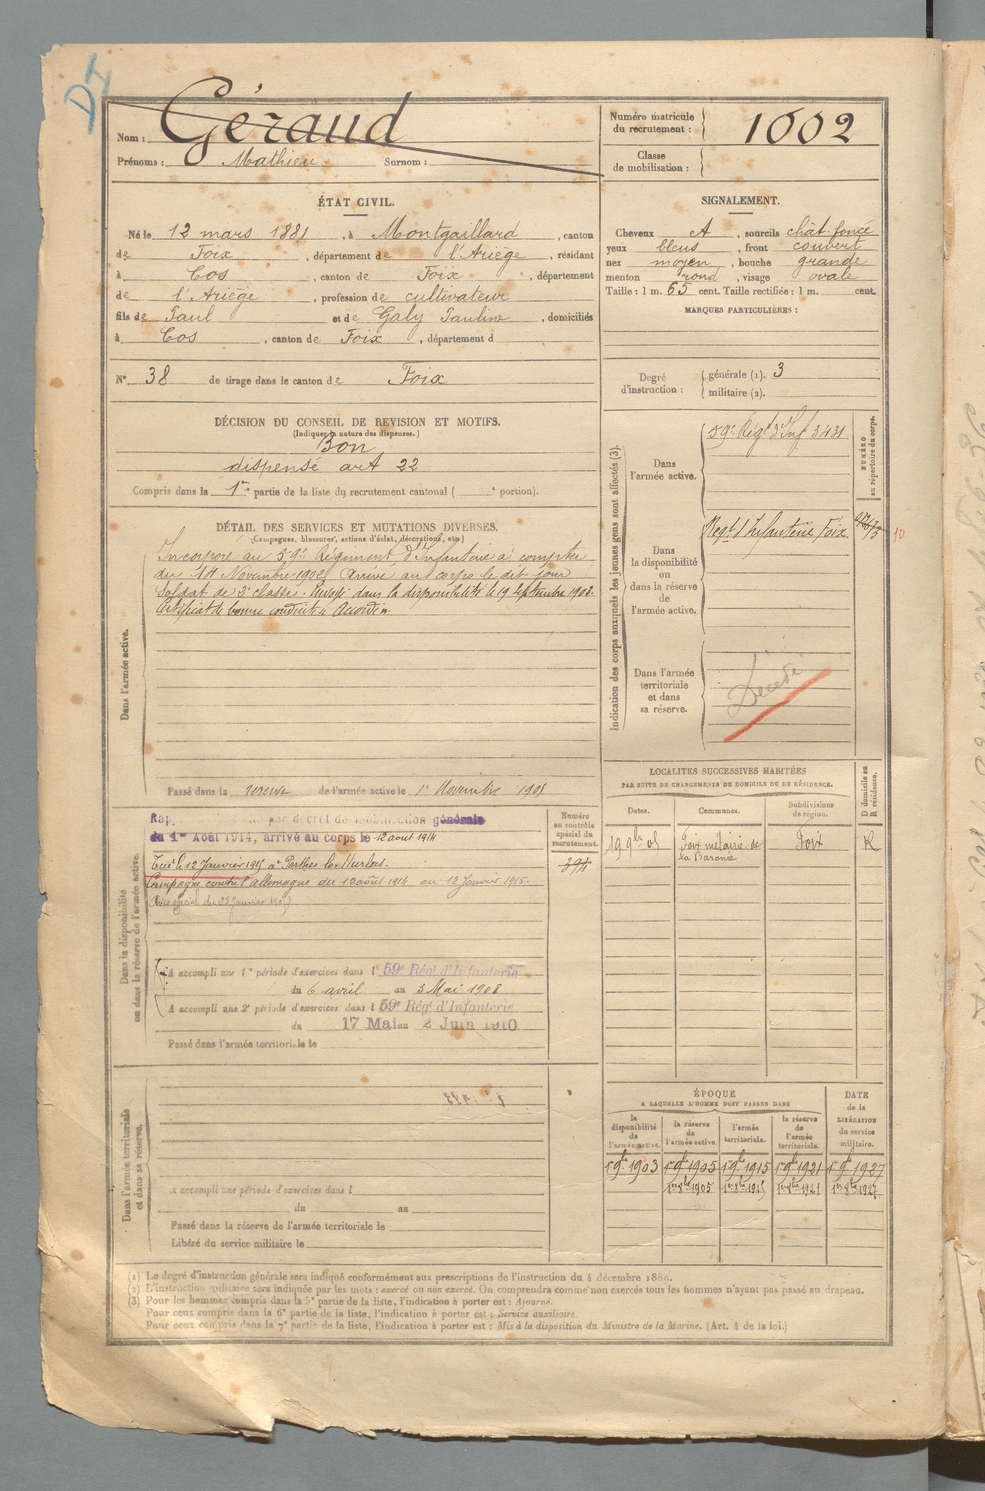 DI
Nom : Géraud
Prénoms : Mathieu Surnom :
Numéro matricule du recrutement : 1002
Classe de mobilisation :
ÉTAT CIVIL.
Né le 12 mars 1881, à Montgaillard, canton
de Foix, département de l'Ariège, résidant
à Cos, canton de Foix, département
de l'Ariège, profession de cultivateur
fils de Paul et de Galy Pauline, domiciliés
à Cos, canton de Foix, département d
N° 38 de tirage dans le canton de Foix
SIGNALEMENT.
Cheveux et, sourcils chât foncé
yeux bleus, front couvert
nez moyen, bouche grande
menton rond, visage ovale
Taille : 1 m. 65 cent. Taille rectifiée : 1 m. cent.
MARQUES PARTICULIÈRES :
Degré d'instruction :
générale (1). 3
militaire (2).
DÉCISION DU CONSEIL DE REVISION ET MOTIFS.
(Indiquer la nature des dispenses.)
Bon
dispensé art 22
Compris dans la 1re partie de la liste du recrutement cantonal ( e portion).
DÉTAIL DES SERVICES ET MUTATIONS DIVERSES.
(Campagnes, blessures, actions d'éclat, décorations, etc.)
Dans l'armée active.
Incorporé au 59e Régiment d'Infanterie à compter
du 14 Novembre 1902, arrivé au corps le dit jour
Soldat de 2e classe. Envoyé dans la disponibilité le 19 septembre 1903.
Certificat de bonne conduite Accordé.
Passé dans la réserve de l'armée active le 1er Novembre 1905
Indication des corps auxquels les jeunes gens sont affectés (3).
NUMÉRO au répertoire du corps.
Dans l'armée active.
59e Régt d'Inf 3431
Dans la disponibilité ou dans la réserve de l'armée active.
Regt d'Infanterie Foix
10
Dans l'armée territoriale et dans sa réserve.
Décédé
LOCALITÉS SUCCESSIVES HABITÉES
PAR SUITE DE CHANGEMENTS DE DOMICILE OU DE RÉSIDENCE.
Dates.
Communes.
Subdivisions de région.
D domicile ou R résidence.
19 9bre 05
Foix métairie de
la Baronie
Foix
R
Dans la disponibilité ou dans la réserve de l'armée active.
Numéro au contrôle spécial du recrutement.
294
par décret de mobilisation générale
du 1er Août 1914, arrivé au corps le 12 août 1914
Tué le 12 Janvier 1915 à Perthes les Hurlus.
Campagne contre l'allemagne du 12 août 1914 au 12 Janvier 1915.
A accompli une 1re période d'exercices dans l 59e Régt d'Infanterie
du 6 avril au 3 Mai 1908
A accompli une 2e période d'exercices dans l 59e Régt d'Infanterie
du 17 Mai au 2 Juin 1910
Passé dans l'armée territoriale le
Dans l'armée territoriale et dans sa réserve.
A accompli une période d'exercices dans l
du au
Passé dans la réserve de l'armée territoriale le
Libéré du service militaire le
ÉPOQUE
A LAQUELLE L'HOMME DOIT PASSER DANS
la disponibilité de l'armée active.
la réserve de l'armée active.
l'armée territoriale.
la réserve de l'armée territoriale.
DATE de la LIBÉRATION du service militaire.
1er 9bre 1903 1er 9bre 1905 1er 9bre 1915 1er 9bre 1921 1er 9bre 1927
1er 8bre 1905 1er 8bre 1915 1er 8bre 1921 1er 8bre 1927
(1) Le degré d'instruction générale sera indiqué conformément aux prescriptions de l'instruction du 4 décembre 1889.
(2) L'instruction militaire sera indiquée par les mots : exercé ou non exercé. On comprendra comme non exercés tous les hommes n'ayant pas passé au drapeau.
(3) Pour les hommes compris dans la 5e partie de la liste, l'indication à porter est : Ajourné.
Pour ceux compris dans la 6e partie de la liste, l'indication à porter est : Service auxiliaire.
Pour ceux compris dans la 7e partie de la liste, l'indication à porter est : Mis à la disposition du Ministre de la Marine. (Art. 4 de la loi.)